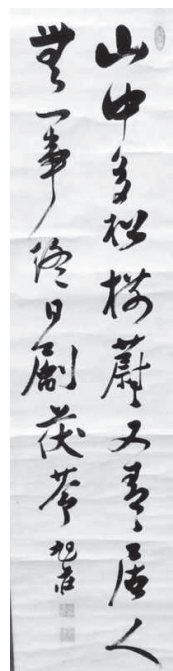 山中多松樹蔚々又青々居人
無一事終日劚茯苓 旭荘